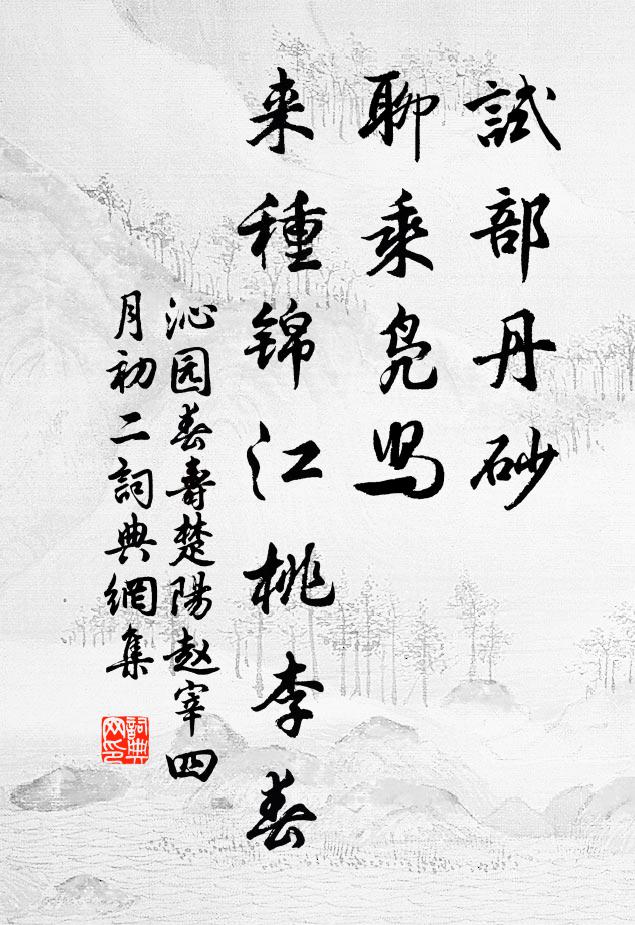 試部丹砂
聊乘凫舄
来種锦江桃李春
沁园春壽楚陽赵宰四
月初二詞典網集
詞典网印